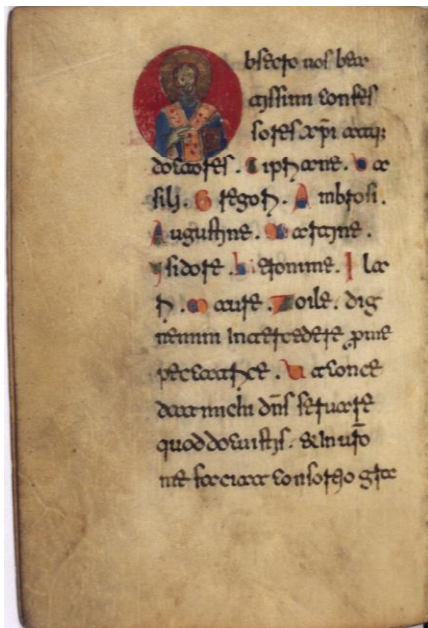 bsecro uos bea
tissimi confes
sores xp̄i atq;
doctores. Eiphane. Ba
silij. Gregorij. Ambrosi.
Augustine. Martine.
Isidore. Hieronime. Ila
rij. Maure. Zoile. dig
nemini intercedere p̱ me
peccatrice. Ut conce
dat michi dn̄s seruare
quod docuistis. & in ur̄o
me faciat consortio gl̄a